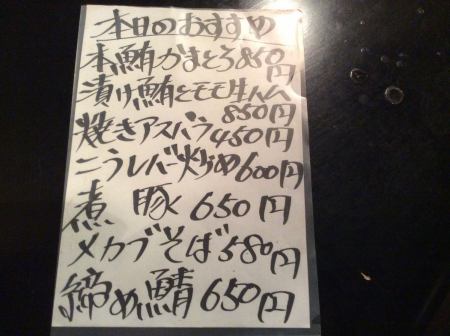 本日のおすすめ
本鮪かまとろ850円
漬け鮪とモモ生ハム
850円
焼きアスパラ450円
ニラレバー炒め600円
煮豚650円
メカブそば580円
締め鯖650円